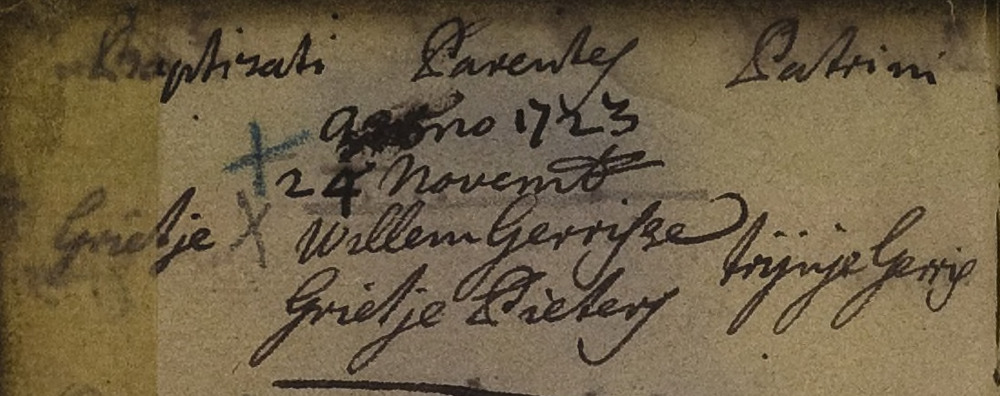 Baptisati Parentes Patrini
Anno 1723
24 Novemb
Grietje Willem Gerrisse trijntje Gerris
Grietje Pieters